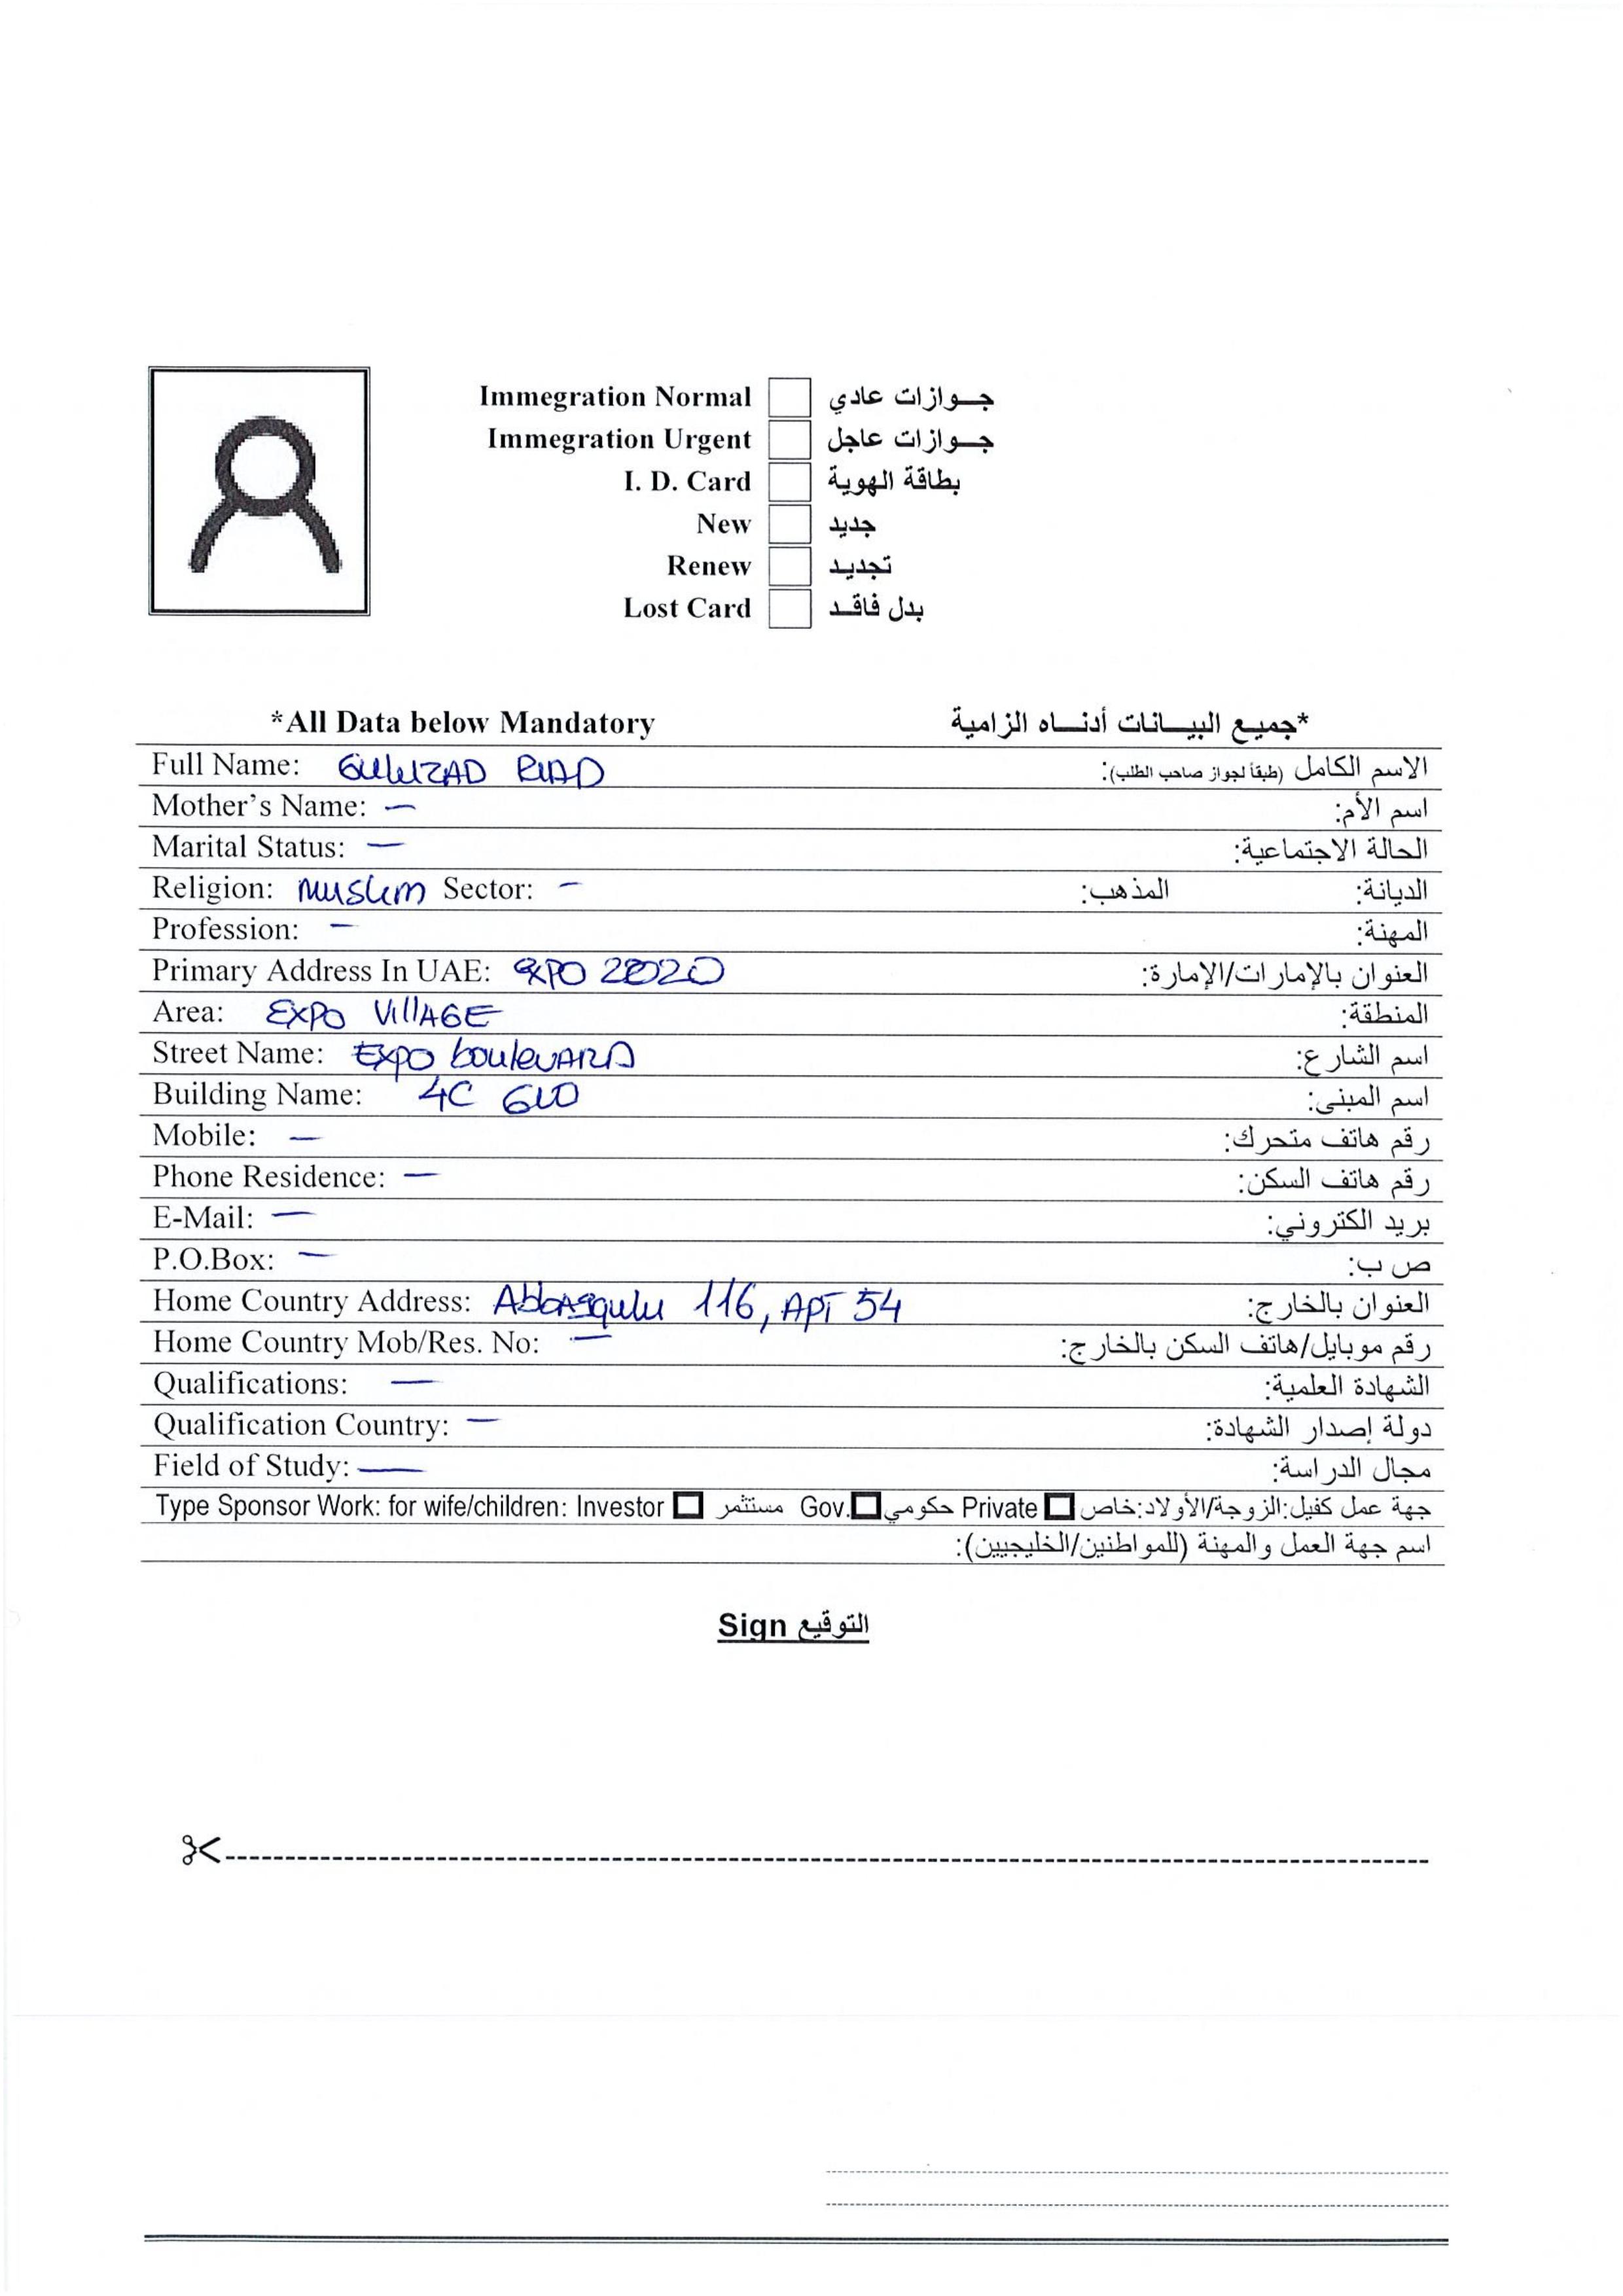 Immegration Normal جـوازات عادي
Immegration Urgent جـوازات عاجل
I. D. Card بطاقة الهوية
New جديد
Renew تجديد
Lost Card بدل فاقد
*All Data below Mandatory *جميع البيـانات أدنـاه الزامية
Full Name: RIAD الاسم الكامل (طبقاً لجواز صاحب الطلب):
Mother's Name: — اسم الأم:
Marital Status: — الحالة الاجتماعية:
Religion: Muslim Sector: - الديانة: المذهب:
Profession: - المهنة:
Primary Address In UAE: EXPO 2020 العنوان بالإمارات/الإمارة:
Area: EXPO VIllAGE المنطقة:
Street Name: Expo boulevARD اسم الشارع:
Building Name: 4C اسم المبنى:
Mobile: — رقم هاتف متحرك:
Phone Residence: — رقم هاتف السكن:
E-Mail: — بريد الكتروني:
P.O.Box: — ص ب:
Home Country Address: Abbasqulu 116, APT 54 العنوان بالخارج:
Home Country Mob/Res. No: — رقم موبايل/هاتف السكن بالخارج:
Qualifications: — الشهادة العلمية:
Qualification Country: — دولة إصدار الشهادة:
Field of Study: — مجال الدراسة:
Type Sponsor Work: for wife/children: Investor مستثمر Gov. حكومي Private جهة عمل كفيل:الزوجة/الأولاد:خاص
اسم جهة العمل والمهنة (للمواطنين/الخليجيين):
Sign التوقيع